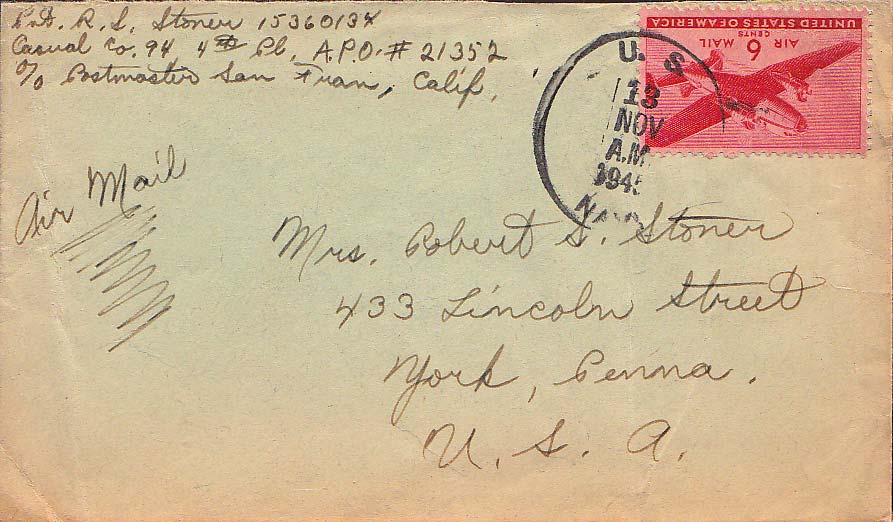 Pvt. R. S. Stoner 15360134
Casual Co. 94 4th Pl. A.P.O. # 21352
c/o Postmaster San Fran, Calif.
UNITED STATES OF AMERICA
AIR MAIL
6
CENTS
U. S.
13
NOV
A.M.
1945
Air Mail
Mrs. Robert S. Stoner
433 Lincoln Street
York, Penna.
U. S. A.